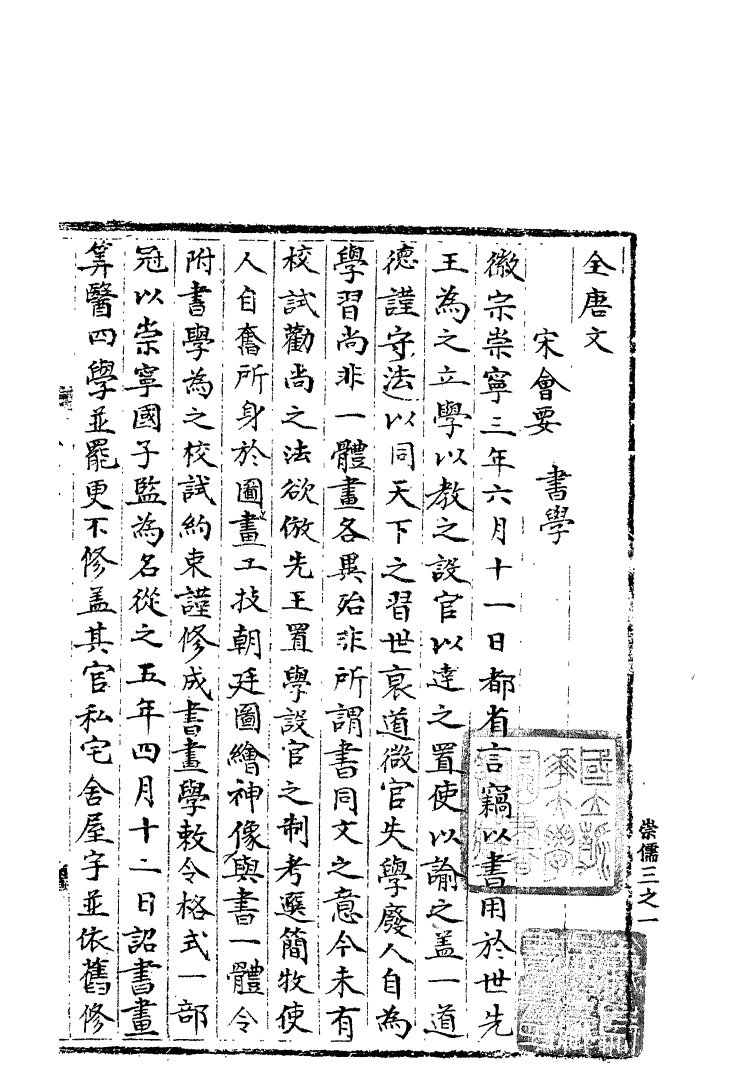 全唐文
宋會要　書學
徽宗崇寧三年六月十一日都省言竊以書用於世先
王為之立學以教之設官以達之置使以諭之盖一道
德謹守法以同天下之習世衰道微官失學廢人自為
學習尚非一體畫各異殆非所謂書同文之意今未有
校試勸尚之法欲倣先王置學設官之制考選簡牧使
人自奮所身於圖畫工技朝廷圖繪神像與書一體令
附書學為之校試約束謹修成書畫學敕令格式一部
冠以崇寧國子監為名從之五年四月十二日詔書畫
筭醫四學並罷更不修盖其官私宅舍屋字並依舊修
崇儒三之一